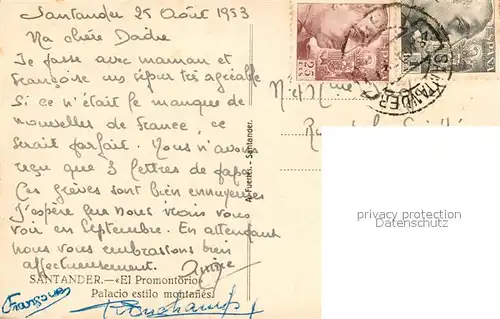 Santander 25 Août 1953
Ma chère Dadre
Je passe avec maman et
Françoise un séjour très agréable
Si ce n'était le manque de
nouvelles de France, ce
serait parfait. Nous n'avons
reçu que 3 lettres de papa
Ces grèves sont bien ennuyeuses
J'espère que nous irons vous
voir en Septembre. En attendant
nous vous embrassons bien
affectueusement.
SANTANDER.—«El Promontorio»
Palacio estilo montañés.
Françoise
A. Fuertes. - Santander.
25
privacy protection